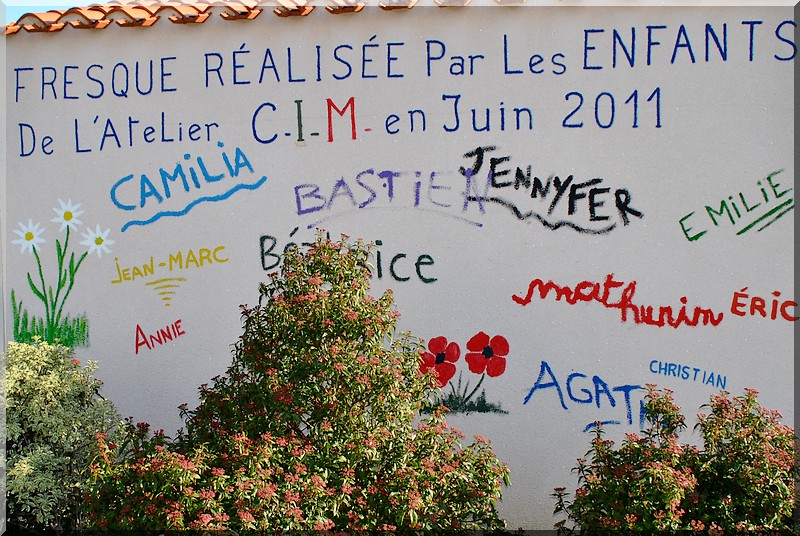 FRESQUE RÉALISÉE Par Les ENFANTS
De L'AteLier C.I.M. en Juin 2011
CAMILIA
BASTIEN
JENNYFER
EMILIE
JEAN-MARC
mathurin
ÉRIC
ANNIE
CHRISTIAN